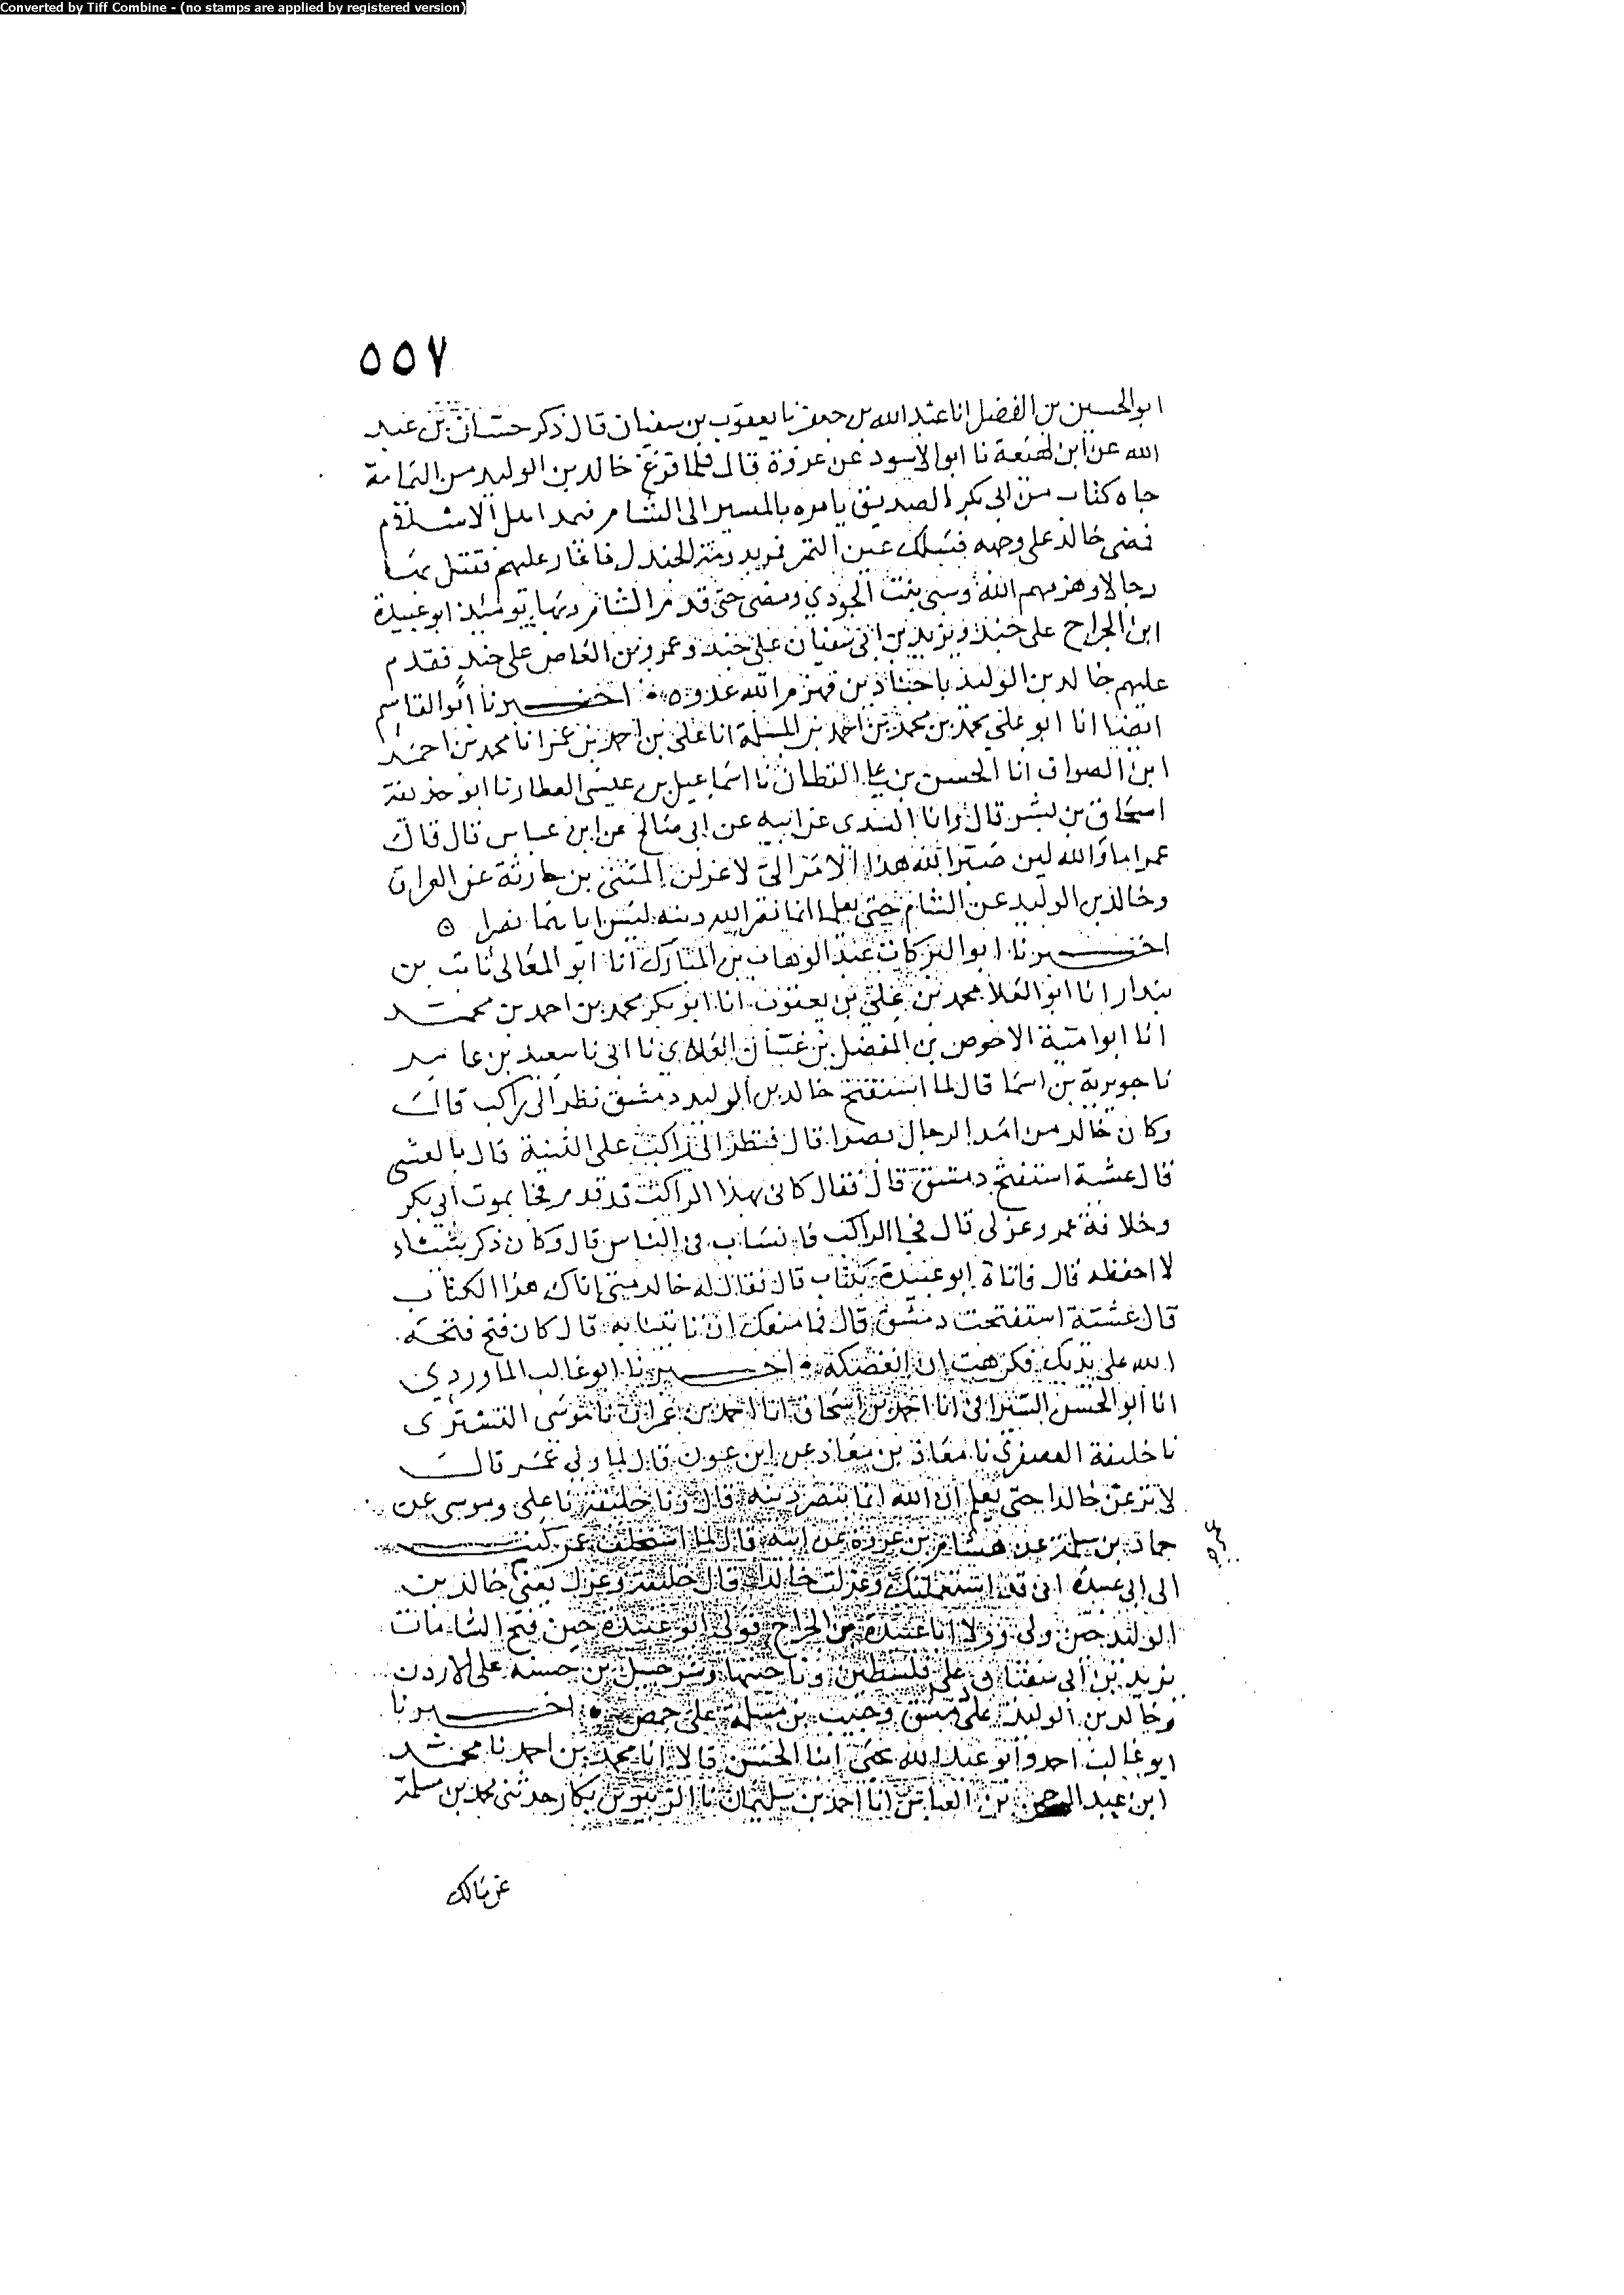 Converted by Tiff Combine - (no stamps are applied by registered version)
٥٥٧
ابو الحسين بن الفضل انا عبد الله بن جعفر نا يعقوب بن سفيان قال ذكر حسان بن عبد
الله عن ابن لهيعة نا ابو الاسود عن عروة قال فلما فرغ خالد بن الوليد من اليمامة
جاه كتاب من ابي بكر الصديق يامره بالمسير الى الشام فيمد اهل الاسلام
فمضى خالد على وجهه فسلك عين التمر فمر بدومة الجندل فاغار عليهم فقتل بها
رجالا وهزمهم الله وسبى بنت الجودي ومضى حتى قدم الشام وبها يومئذ ابو عبيدة
ابن الجراح على جند ويزيد بن ابي سفيان على جند وعمرو بن العاص على جند فقدم
عليهم خالد بن الوليد باجنادين فهزم الله عدوه اخبرنا ابو القاسم
ايضا انا ابو علي محمد بن محمد بن احمد بن المسلمة انا علي بن احمد بن عمر انا محمد بن احمد
ابن الصواف انا الحسن بن علي القطان نا اسماعيل بن عيسى العطار نا ابو حذيفة
اسحاق بن بشر قال وانا السدي عن ابيه عن ابي صالح عن ابن عباس قال قال
عمر اما والله لين صير الله هذا الامر الي لاعزلن المثنى بن حارثة عن العراق
وخالد بن الوليد عن الشام حتى يعلما انما نصر الله دينه ليس اياهما نصر ه
اخبرنا ابو البركات عبد الوهاب بن المبارك انا ابو المعالي ثابت بن
بندار انا ابو العلا محمد بن علي بن يعقوب انا ابو بكر محمد بن احمد بن محمد
انا ابو امية الاحوص بن المفضل بن غسان الغلابي نا ابي نا سعيد بن عامر
نا جويرية بن اسما قال لما استفتح خالد بن الوليد دمشق نظر الى راكب قال
وكان خالد من امد الرجال بصرا قال فنظر الى راكب على الثنية قال بالعشي
قال عشية استفتح دمشق قال فقال كاني بهذا الراكب قد قدم فجا بموت ابي بكر
وخلافة عمر وعزلي قال فجا الراكب فانساب في الناس قال وكان ذكر شياء
لا احفظه قال فاتاه ابو عبيدة بكتاب قال فقال له خالد متى اتاك هذا الكتاب
قال عشية استفتحت دمشق قال فما منعك ان تاتينا به قال كان فتح فتحه
الله على يديك فكرهت ان انغصكه اخبرنا ابو غالب الماوردي
انا ابو الحسن السيرافي انا احمد بن اسحاق انا احمد بن عمران نا موسى التستري
نا خليفة العصفري نا معاذ بن معاذ عن ابن عون قال لما ولي عمر قال
لانزعن خالدا حتى يعلم ان الله انما ينصر دينه قال ونا خليفة نا علي وموسى عن
حماد بن سلمة عن هشام بن عروة عن ابيه قال لما استخلف عمر كتب
الى ابي عبيدة اني قد استعملتك وعزلت خالدا قال خليفة وعزل يعني خالد بن
الوليد حين ولي وولا ابا عبيدة بن الجراح فولى ابو عبيدة حين فتح الشامات
يزيد بن ابي سفيان على فلسطين وناحيتها وشرحبيل بن حسنة على الاردن
وخالد بن الوليد على دمشق وحبيب بن مسلمة على حمص اخبرنا
ابو غالب احمد وابو عبد الله يحيى ابنا الحسن قالا انا محمد بن احمد نا محمد
ابن عبد الرحمن بن العباس انا احمد بن سليمان نا الزبير بن بكار حدثني محمد بن مسلمة
عن مالك